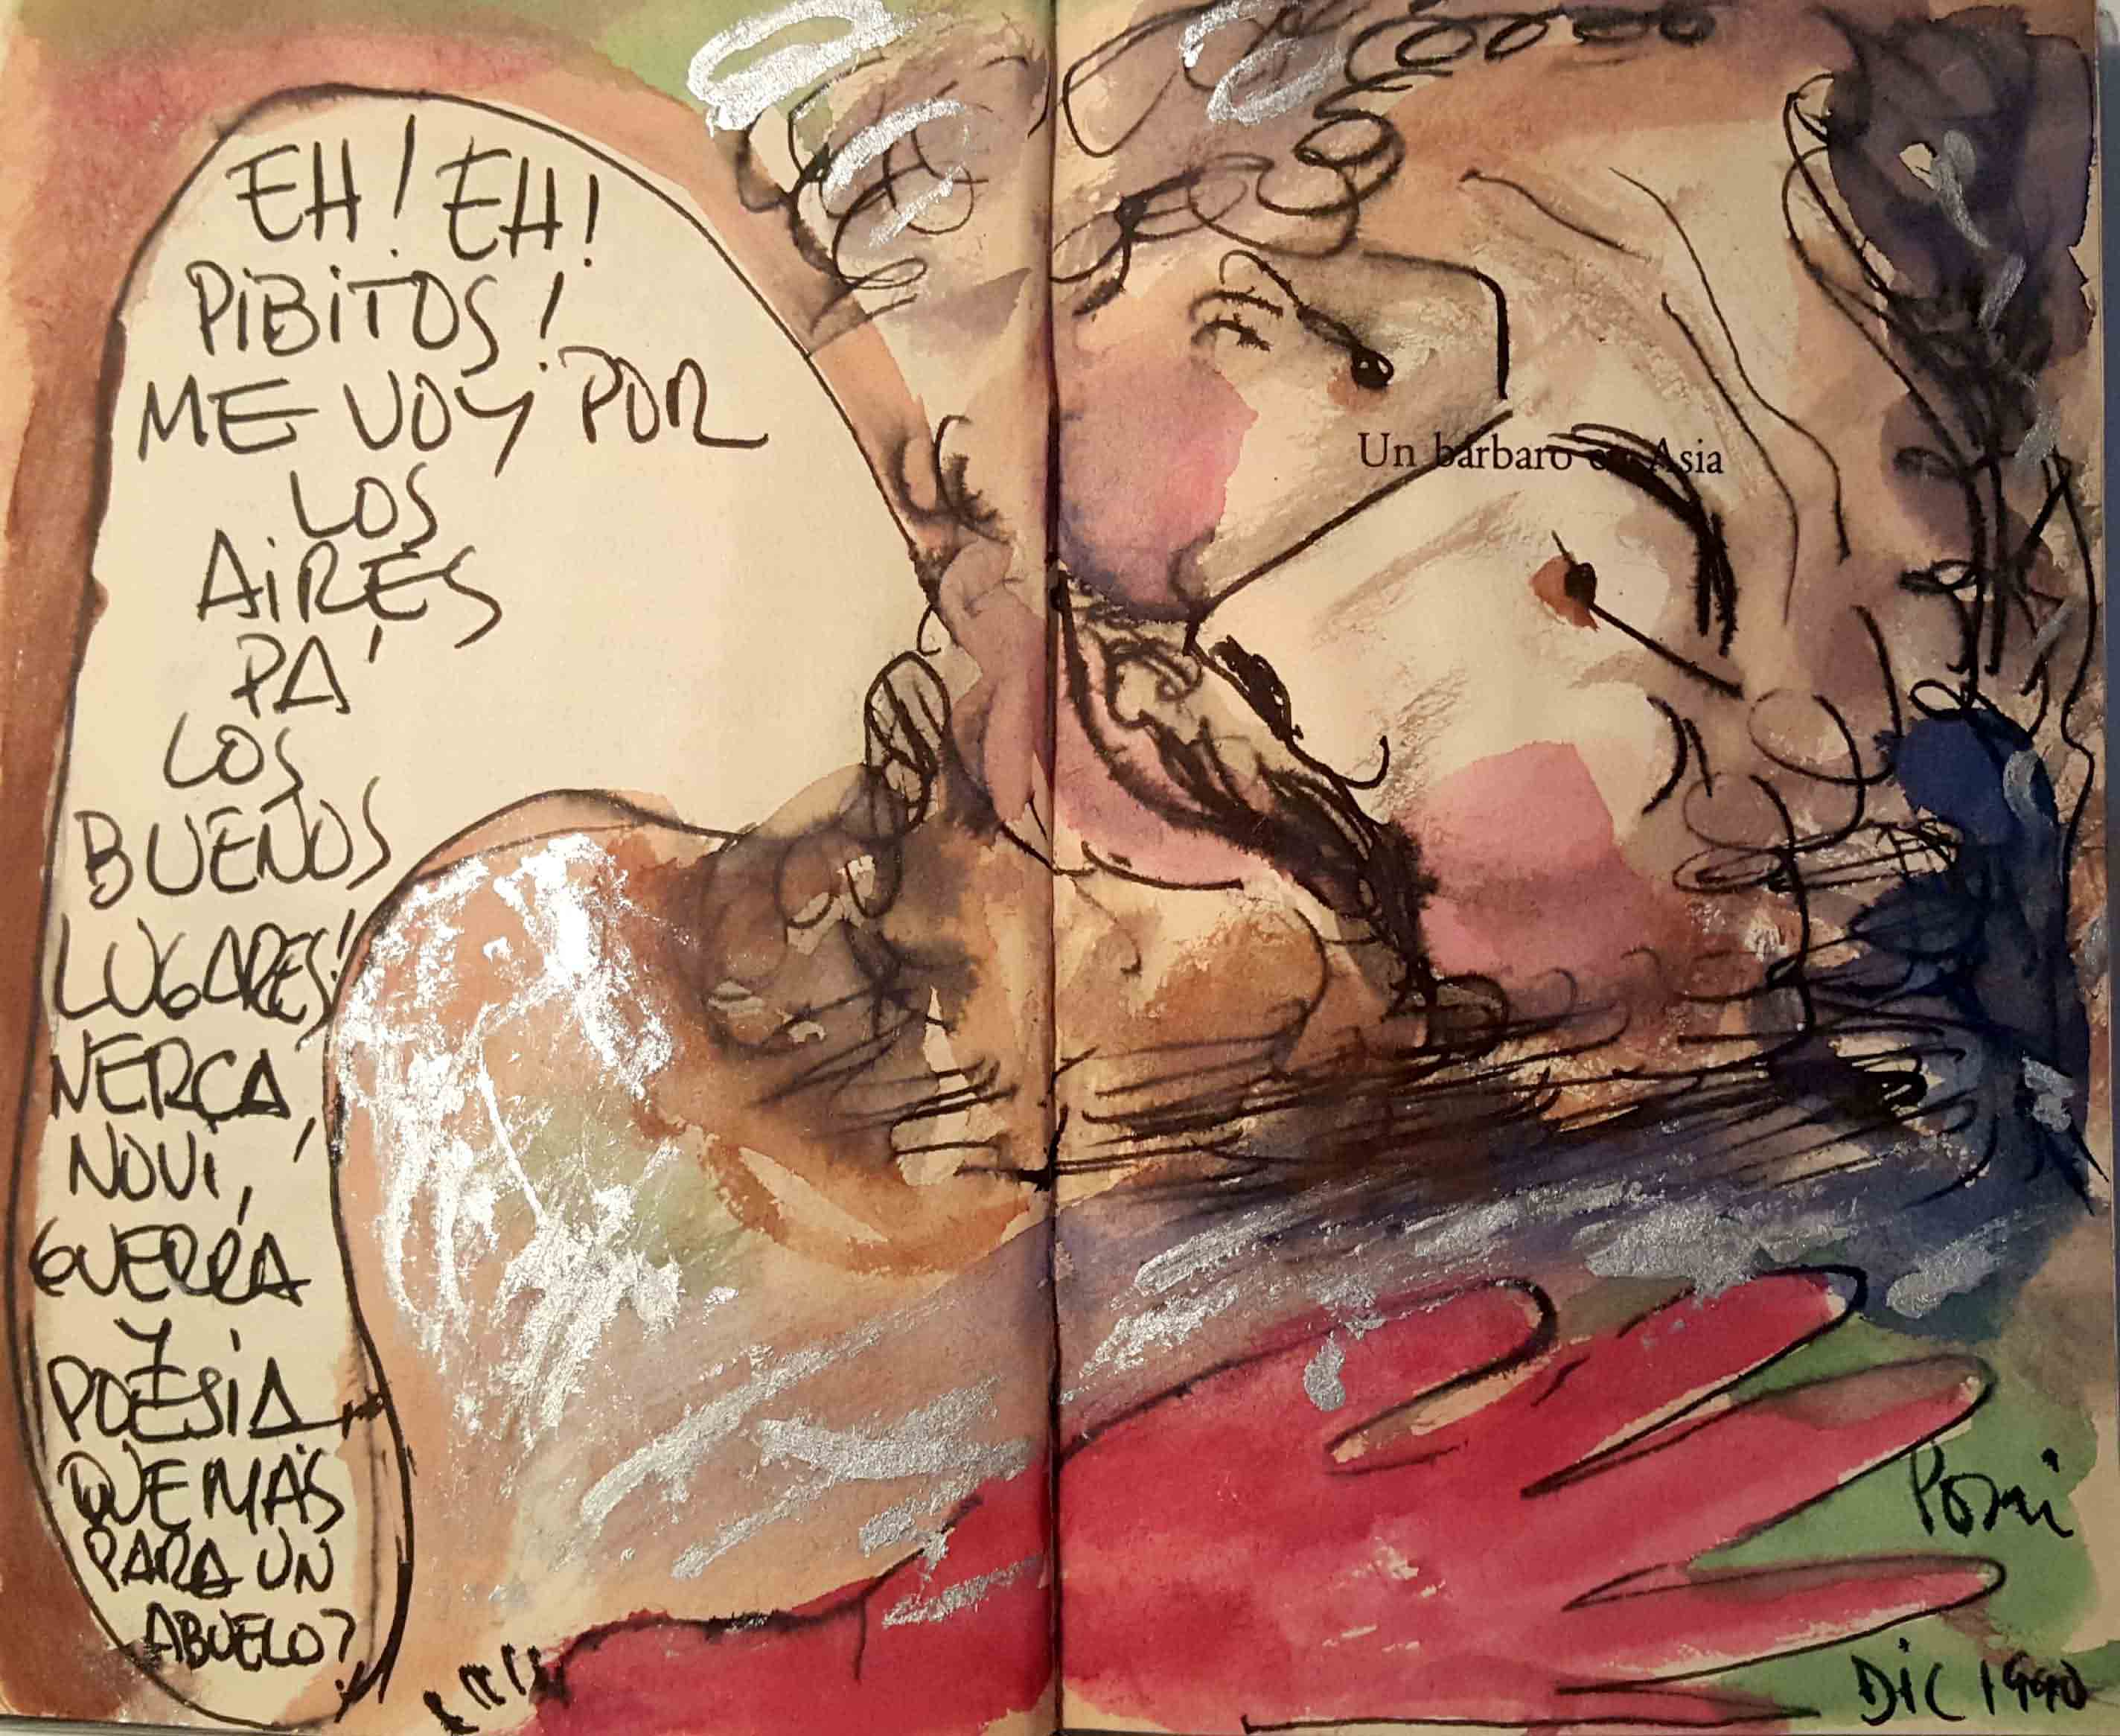 EH! EH!
PIBITOS!
ME VOY POR
LOS
AIRES
PA'
LOS
BUENOS
LUGARES!
NERCA,
NOVI,
GUERRA
Y
POESIA
QUE MÁS
PARA UN
ABUELO?
Un bárbaro en Asia
DIC 1990